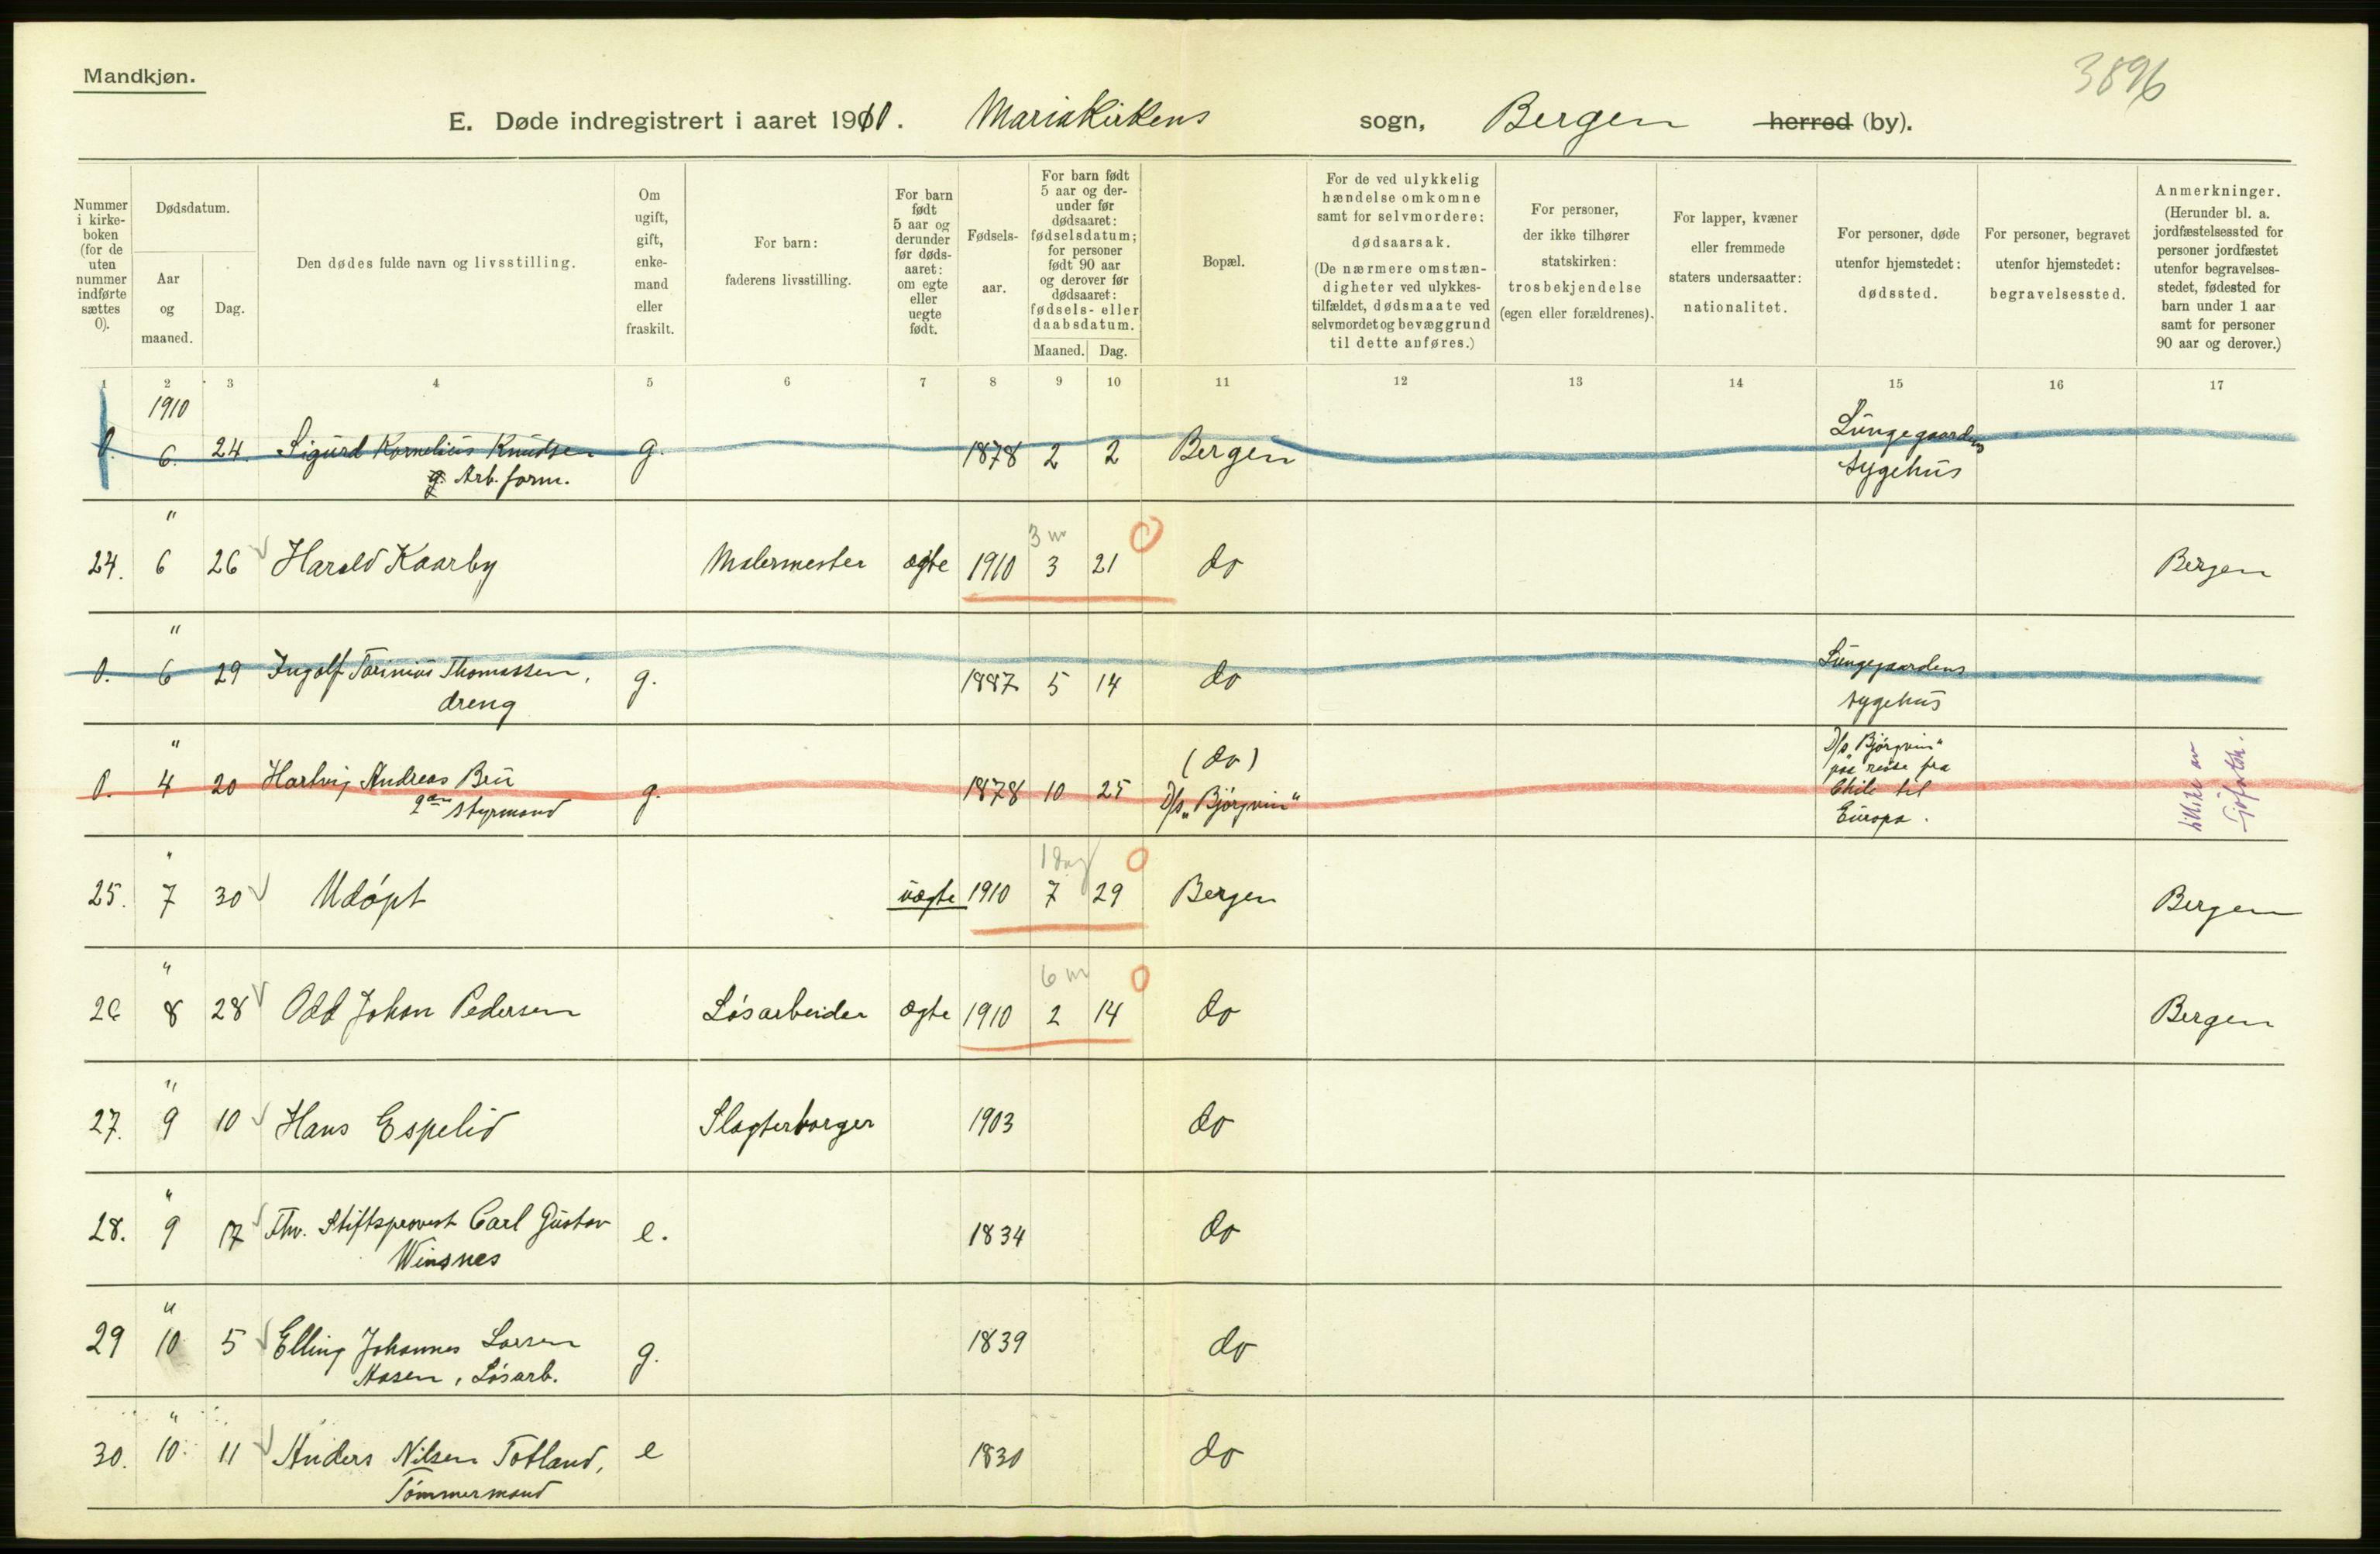 Mandkjøn.
3896
E. Døde indregistrert i aaret 1910. Mariakirkens sogn, Bergen herred (by).
Nummer i kirke-boken (for de uten nummer indførte sættes 0).
Dødsdatum.
Aar og maaned.
Dag.
Den dødes fulde navn og livsstilling.
Om ugift, gift, enke-mand eller fraskilt.
For barn: faderens livsstilling.
For barn født 5 aar og derunder før døds-aaret: om egte eller uegte født.
Fødsels-aar.
For barn født 5 aar og der-under før dødsaaret: fødselsdatum; for personer født 90 aar og derover før dødsaaret: fødsels- eller daabsdatum.
Maaned. Dag.
Bopæl.
For de ved ulykkelig hændelse omkomne samt for selvmordere: dødsaarsak. (De nærmere omstæn-digheter ved ulykkes-tilfældet, dødsmaate ved selvmordet og bevæggrund til dette anføres.)
For personer, der ikke tilhører statskirken: trosbekjendelse (egen eller forældrenes).
For lapper, kvæner eller fremmede staters undersaatter: nationalitet.
For personer, døde utenfor hjemstedet: dødssted.
For personer, begravet utenfor hjemstedet: begravelsessted.
Anmerkninger. (Herunder bl. a. jordfæstelsessted for personer jordfæstet utenfor begravelses-stedet, fødested for barn under 1 aar samt for personer 90 aar og derover.)
1 2 3 4 5 6 7 8 9 10 11 12 13 14 15 16 17
1910
0. 6. 24. Sigurd Kornelius Knudsen g. 1878 2 2 Bergen Lungegaardens
Arb. form. sygehus
" 3 m 0
24. 6 26 Harald Kaarby Malermester ægte 1910 3 21 do Bergen
"
0. 6 29 Ingolf Thomassen, g. 1887 5 14 do Lungegaardens
dreng sygehus
" (do) D/s "Bjørgvin"
0. 4 20 Hartvig Andreas Bru g. 1878 10 25 D/s "Bjørgvin" paa reise fra
styrmand Chile til
Europa.
" 1 dag 0
25. 7 30 Udøpt uægte 1910 7 29 Bergen Bergen
" 6 m 0
26 8 28 Odd Johan Pedersen Løsarbeider ægte 1910 2 14 do Bergen
"
27. 9 10 Hans Espelid Slagterborger 1903 do
"
28. 9 17 Fhv. Stiftsprovst Carl Gustav e. 1834 do
Winsnes
"
29 10 5 Elling Johannes Larsen g. 1839 do
Aasen, Løsarb.
"
30. 10. 11 Anders Nilsen Totland, e 1830 do
Tømmermand